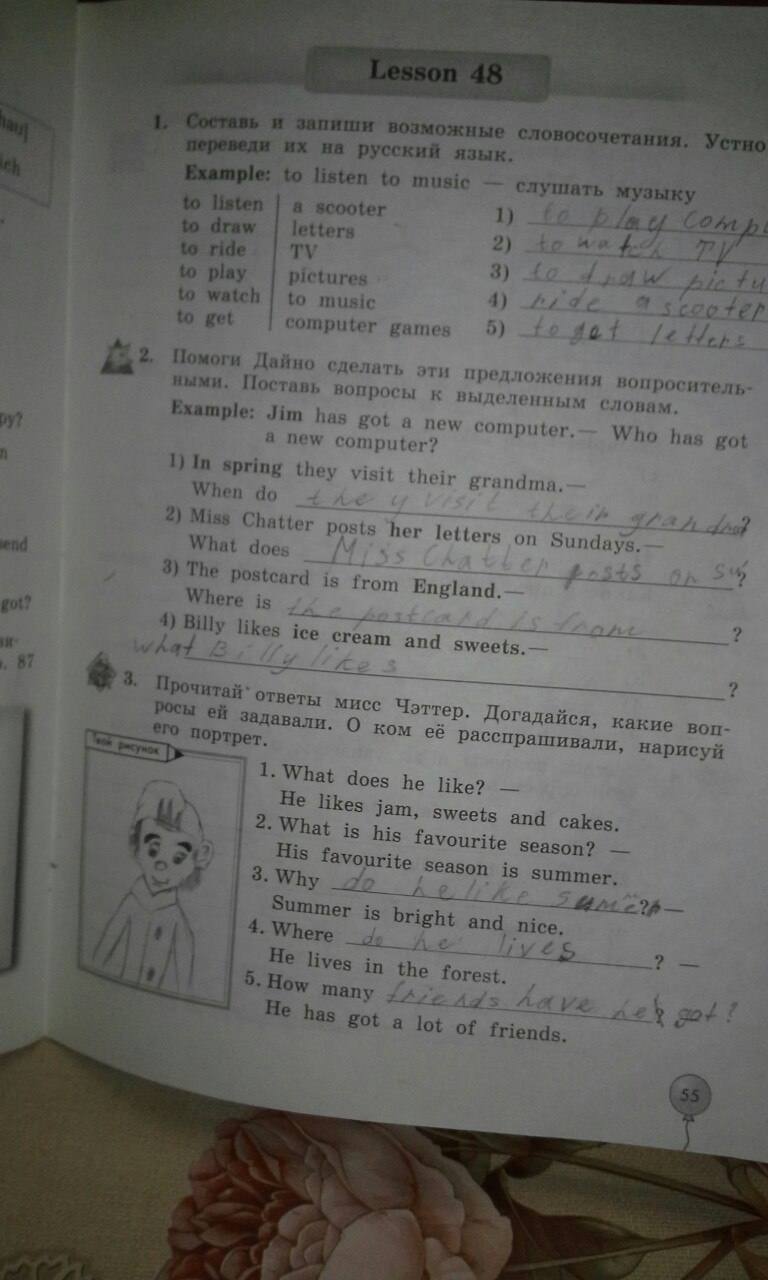 Lesson 48
1. Составь и запиши возможные словосочетания. Устно
переведи их на русский язык.
Example: to listen to music — слушать музыку
to listen | a scooter 1) to play comp
to draw | letters 2) to watch TV
to ride | TV 3) to draw pictu
to play | pictures 4) ride a scooter
to watch | to music 5) to get letters
to get | computer games
2. Помоги Дайно сделать эти предложения вопроситель-
ными. Поставь вопросы к выделенным словам.
Example: Jim has got a new computer.— Who has got
a new computer?
1) In spring they visit their grandma.—
When do they visit their grandma?
2) Miss Chatter posts her letters on Sundays.—
What does Miss Chatter posts on Su?
3) The postcard is from England.—
Where is the postcard is from ?
4) Billy likes ice cream and sweets.—
what Billy likes ?
3. Прочитай ответы мисс Чэттер. Догадайся, какие воп-
росы ей задавали. О ком её расспрашивали, нарисуй
его портрет.
Твой рисунок
1. What does he like? —
He likes jam, sweets and cakes.
2. What is his favourite season? —
His favourite season is summer.
3. Why do he like ? —
Summer is bright and nice.
4. Where do he lives ? —
He lives in the forest.
5. How many friends have he got?
He has got a lot of friends.
55
hau]
ich
ру?
send
got?
. 87